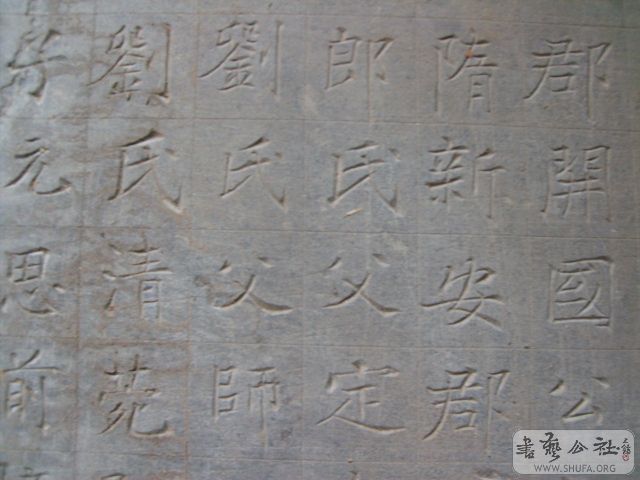 郡開國公
隋新安郡
郎氏父定
劉氏父師
劉氏清苑
兮元思前
書藝公社
WWW.SHUFA.ORG